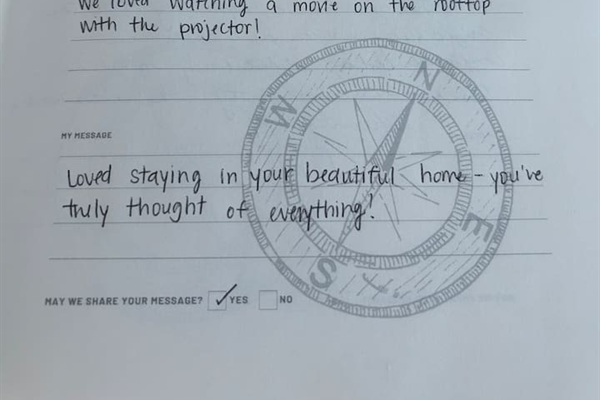 We loved watching a movie on the rooftop
with the projector!
MY MESSAGE
Loved staying in your beautiful home - you've
truly thought of everything!
MAY WE SHARE YOUR MESSAGE? YES NO
N
W
E
S